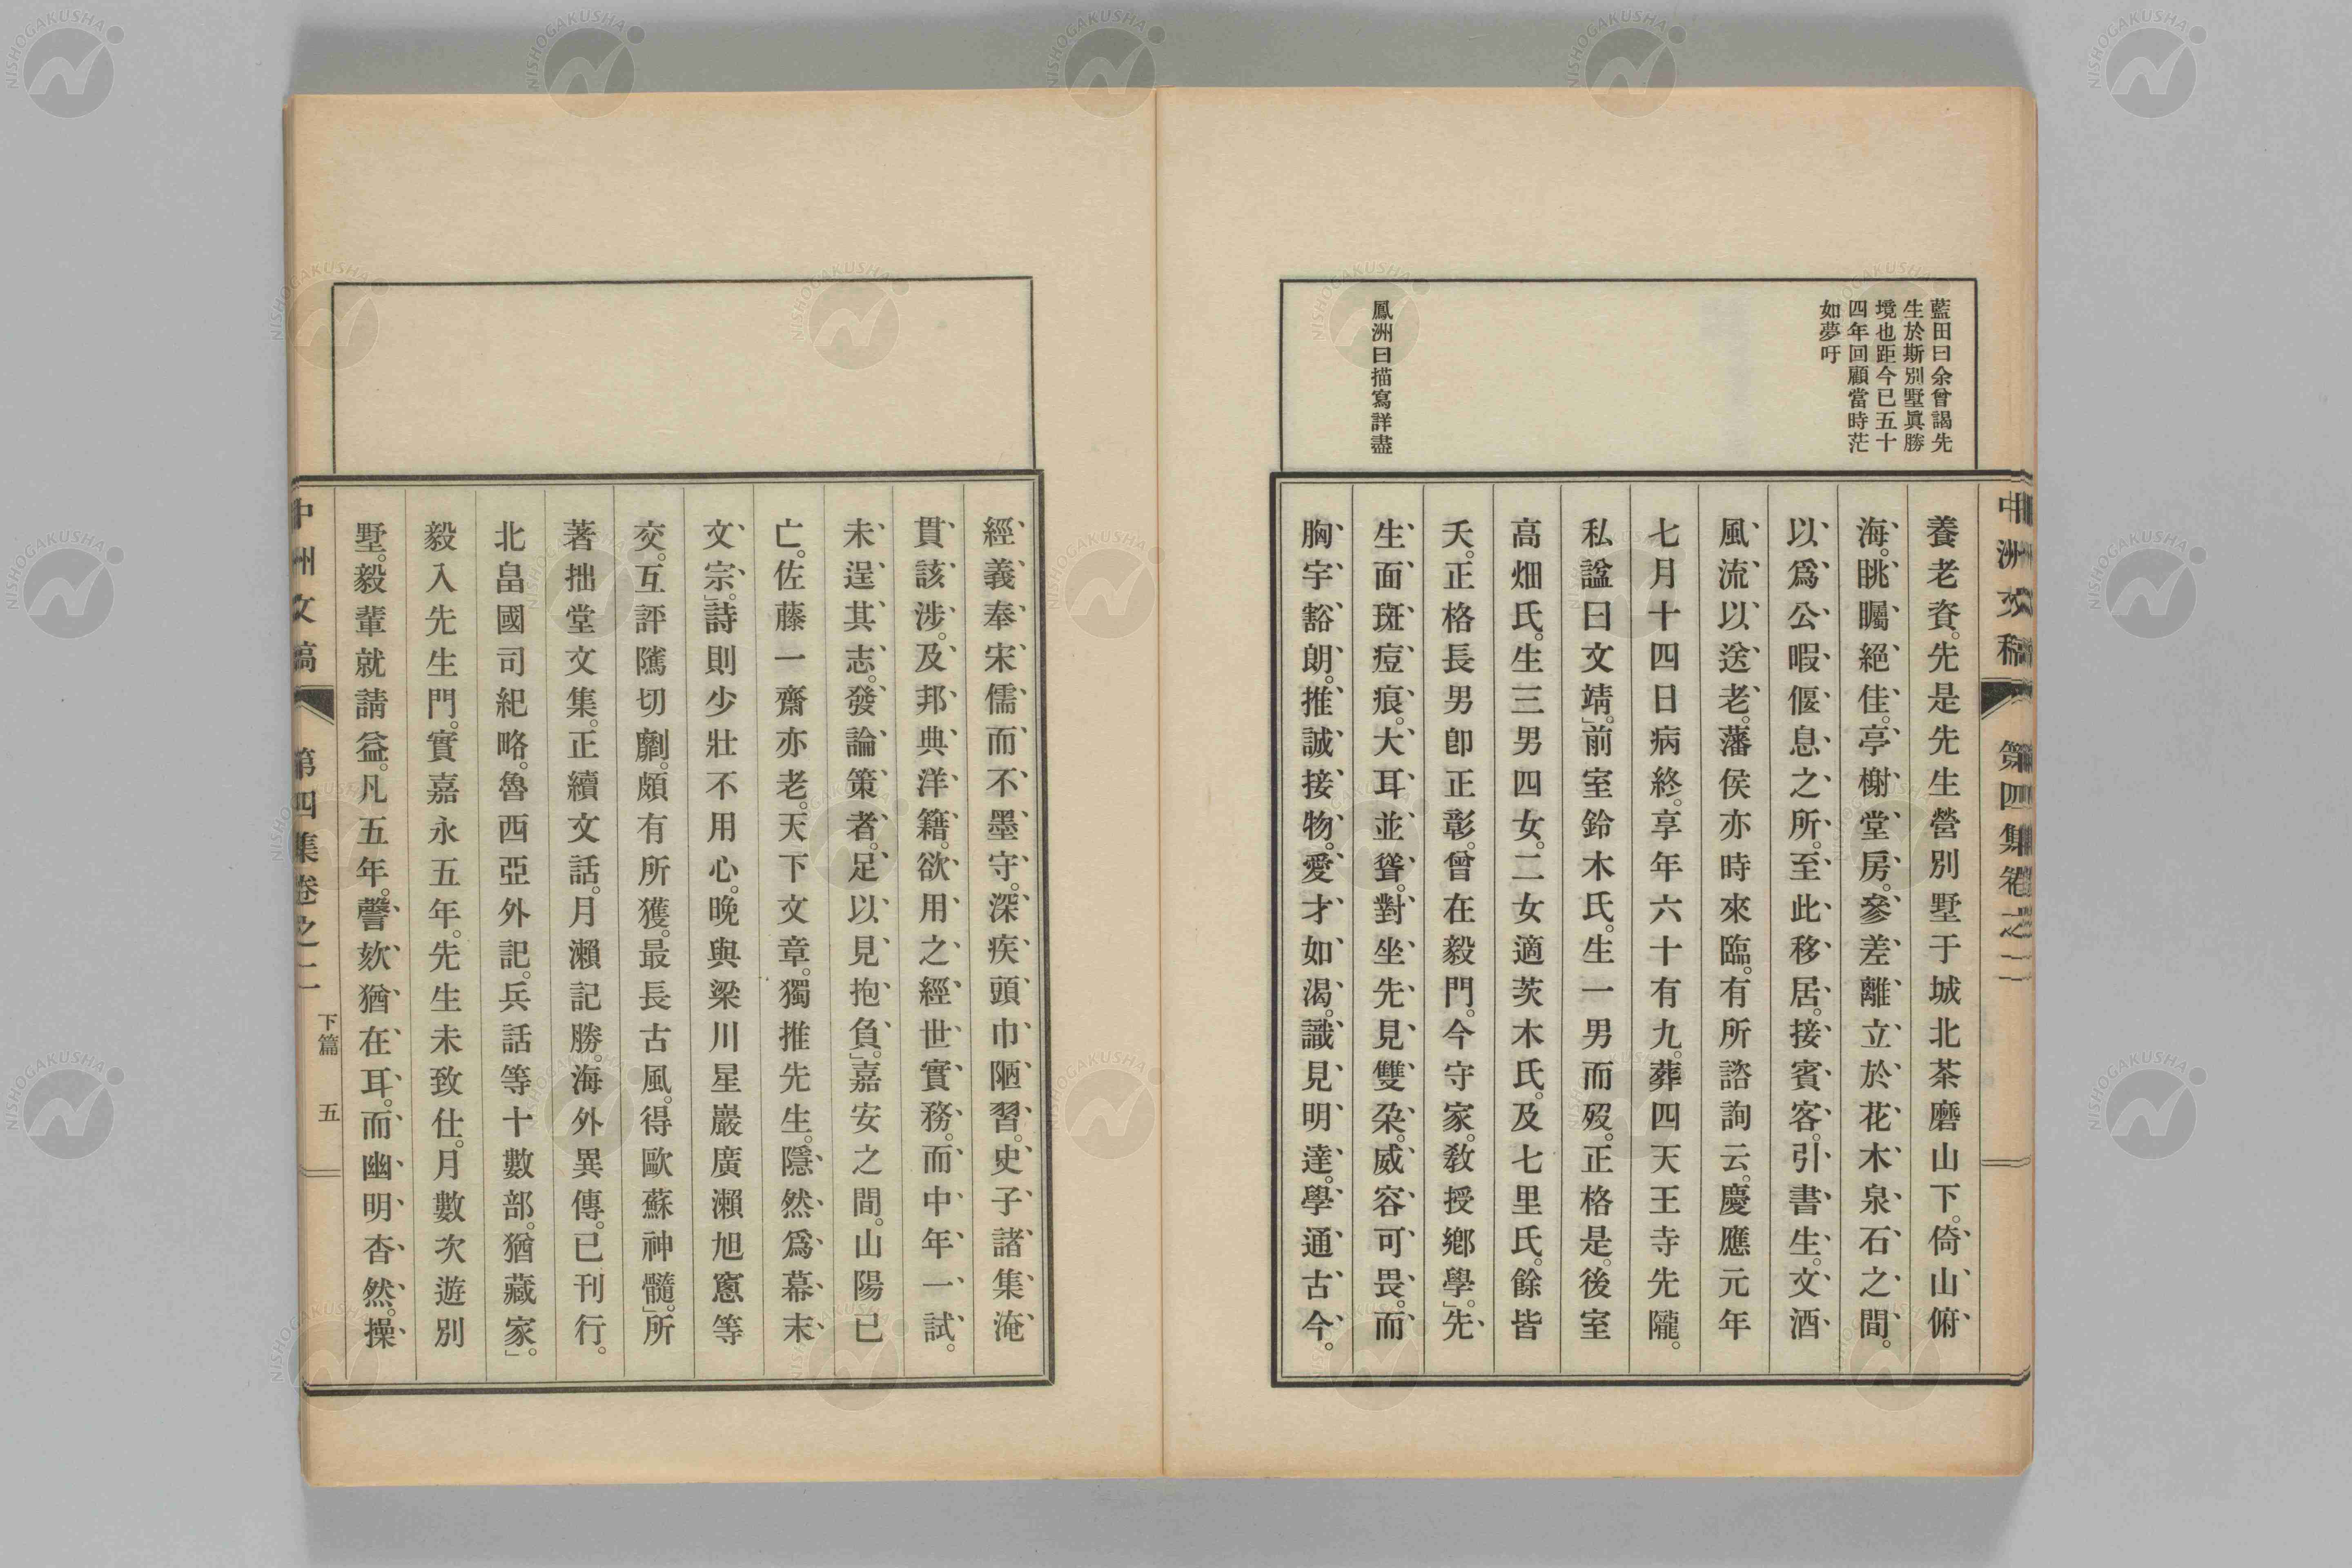 藍田曰余曾謁先
生於斯別墅眞勝
境也距今已五十
四年回顧當時茫
如夢吁
鳳洲曰描寫詳盡
中洲文稿 第四集卷之二
養老資。先是先生營別墅于城北茶磨山下。倚山俯
海。眺矚絕佳。亭榭堂房。參差離立於花木泉石之間。
以爲公暇偃息之所。至此移居。接賓客。引書生。文酒
風流以送老。藩侯亦時來臨。有所諮詢云。慶應元年
七月十四日病終。享年六十有九。葬四天王寺先隴。
私諡曰文靖。」前室鈴木氏。生一男而歿。正格是。後室
高畑氏。生三男四女。二女適茨木氏。及七里氏。餘皆
夭。正格長男卽正彰。曾在毅門。今守家。敎授鄕學。」先
生面斑痘痕。大耳並聳。對坐先見雙朶。威容可畏。而
胸宇豁朗。推誠接物。愛才如渴。識見明達。學通古今。
經義奉宋儒而不墨守。深疾頭巾陋習。史子諸集淹
貫該涉。及邦典洋籍。欲用之經世實務。而中年一試。
未逞其志。發論策者。足以見抱負。」嘉安之間。山陽已
亡。佐藤一齋亦老。天下文章。獨推先生。隱然爲幕末
文宗。」詩則少壯不用心。晚與梁川星巖廣瀨旭窻等
交。互評隲切劘。頗有所獲。最長古風。得歐蘇神髓。」所
著拙堂文集。正續文話。月瀨記勝。海外異傳。已刊行。
北畠國司紀略。魯西亞外記。兵話等十數部。猶藏家。」
毅入先生門。實嘉永五年。先生未致仕。月數次遊別
墅。毅輩就請益。凡五年。謦欬猶在耳。而幽明杳然。操
中洲文稿 第四集卷之二 下篇 五
NISHOGAKUSHA